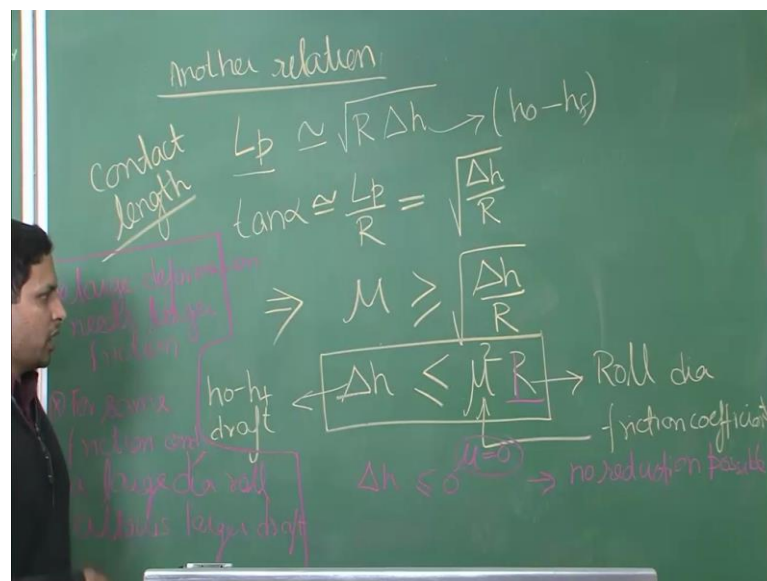 Another relation
contact length
Lp ≃ √(R Δh) → (ho-hf)
tanα ≅ Lp/R = √(Δh/R)
⇒ μ ≥ √(Δh/R)
ho-hf draft ← Δh ≤ μ² R → Roll dia
friction coefficient
Δh ≤ 0 μ=0 → no reduction possible
large deformation
needs larger
friction
For same
friction and
large dia roll
allows larger draft